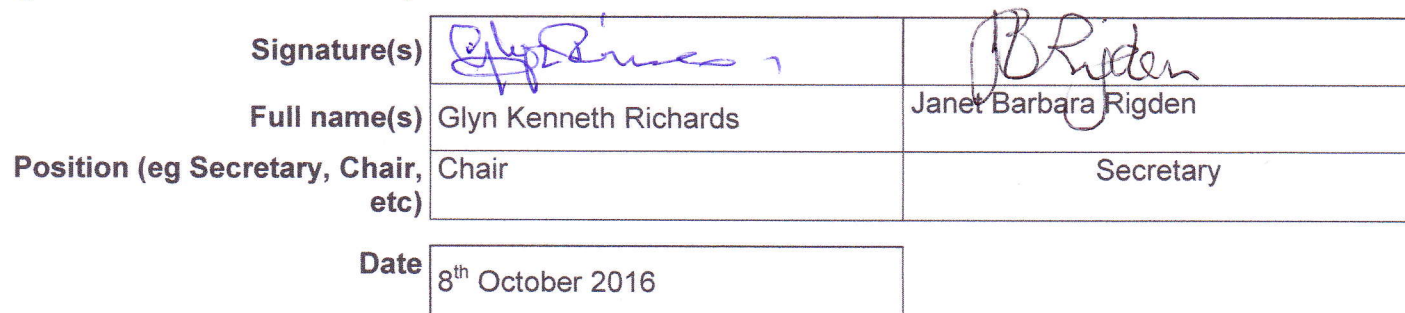 Signature(s) JB Rigden
Full name(s) Glyn Kenneth Richards Janet Barbara Rigden
Position (eg Secretary, Chair, Chair Secretary
etc)
Date 8th October 2016